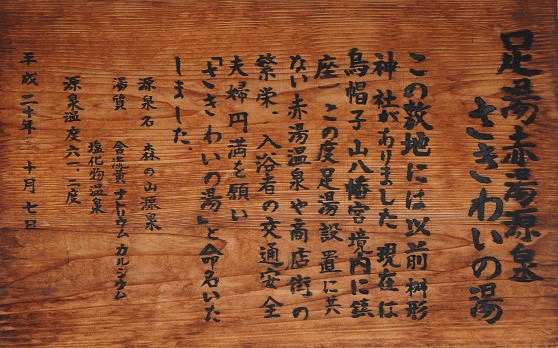 足湯赤湯源泉
さきわいの湯
この敷地には以前桝形
神社がありました 現在は
烏帽子山八幡宮境内に鎮
座 この度足湯設置に共
ない赤湯温泉や商店街の
繁栄、入浴者の交通安全
夫婦円満を願い
『さきわいの湯』と命名いた
しました、
源泉名 森の山源泉
湯質 含硫黄ナトリウム カルシウム
塩化物温泉
源泉温度六一、二度
平成二十年 十月七日